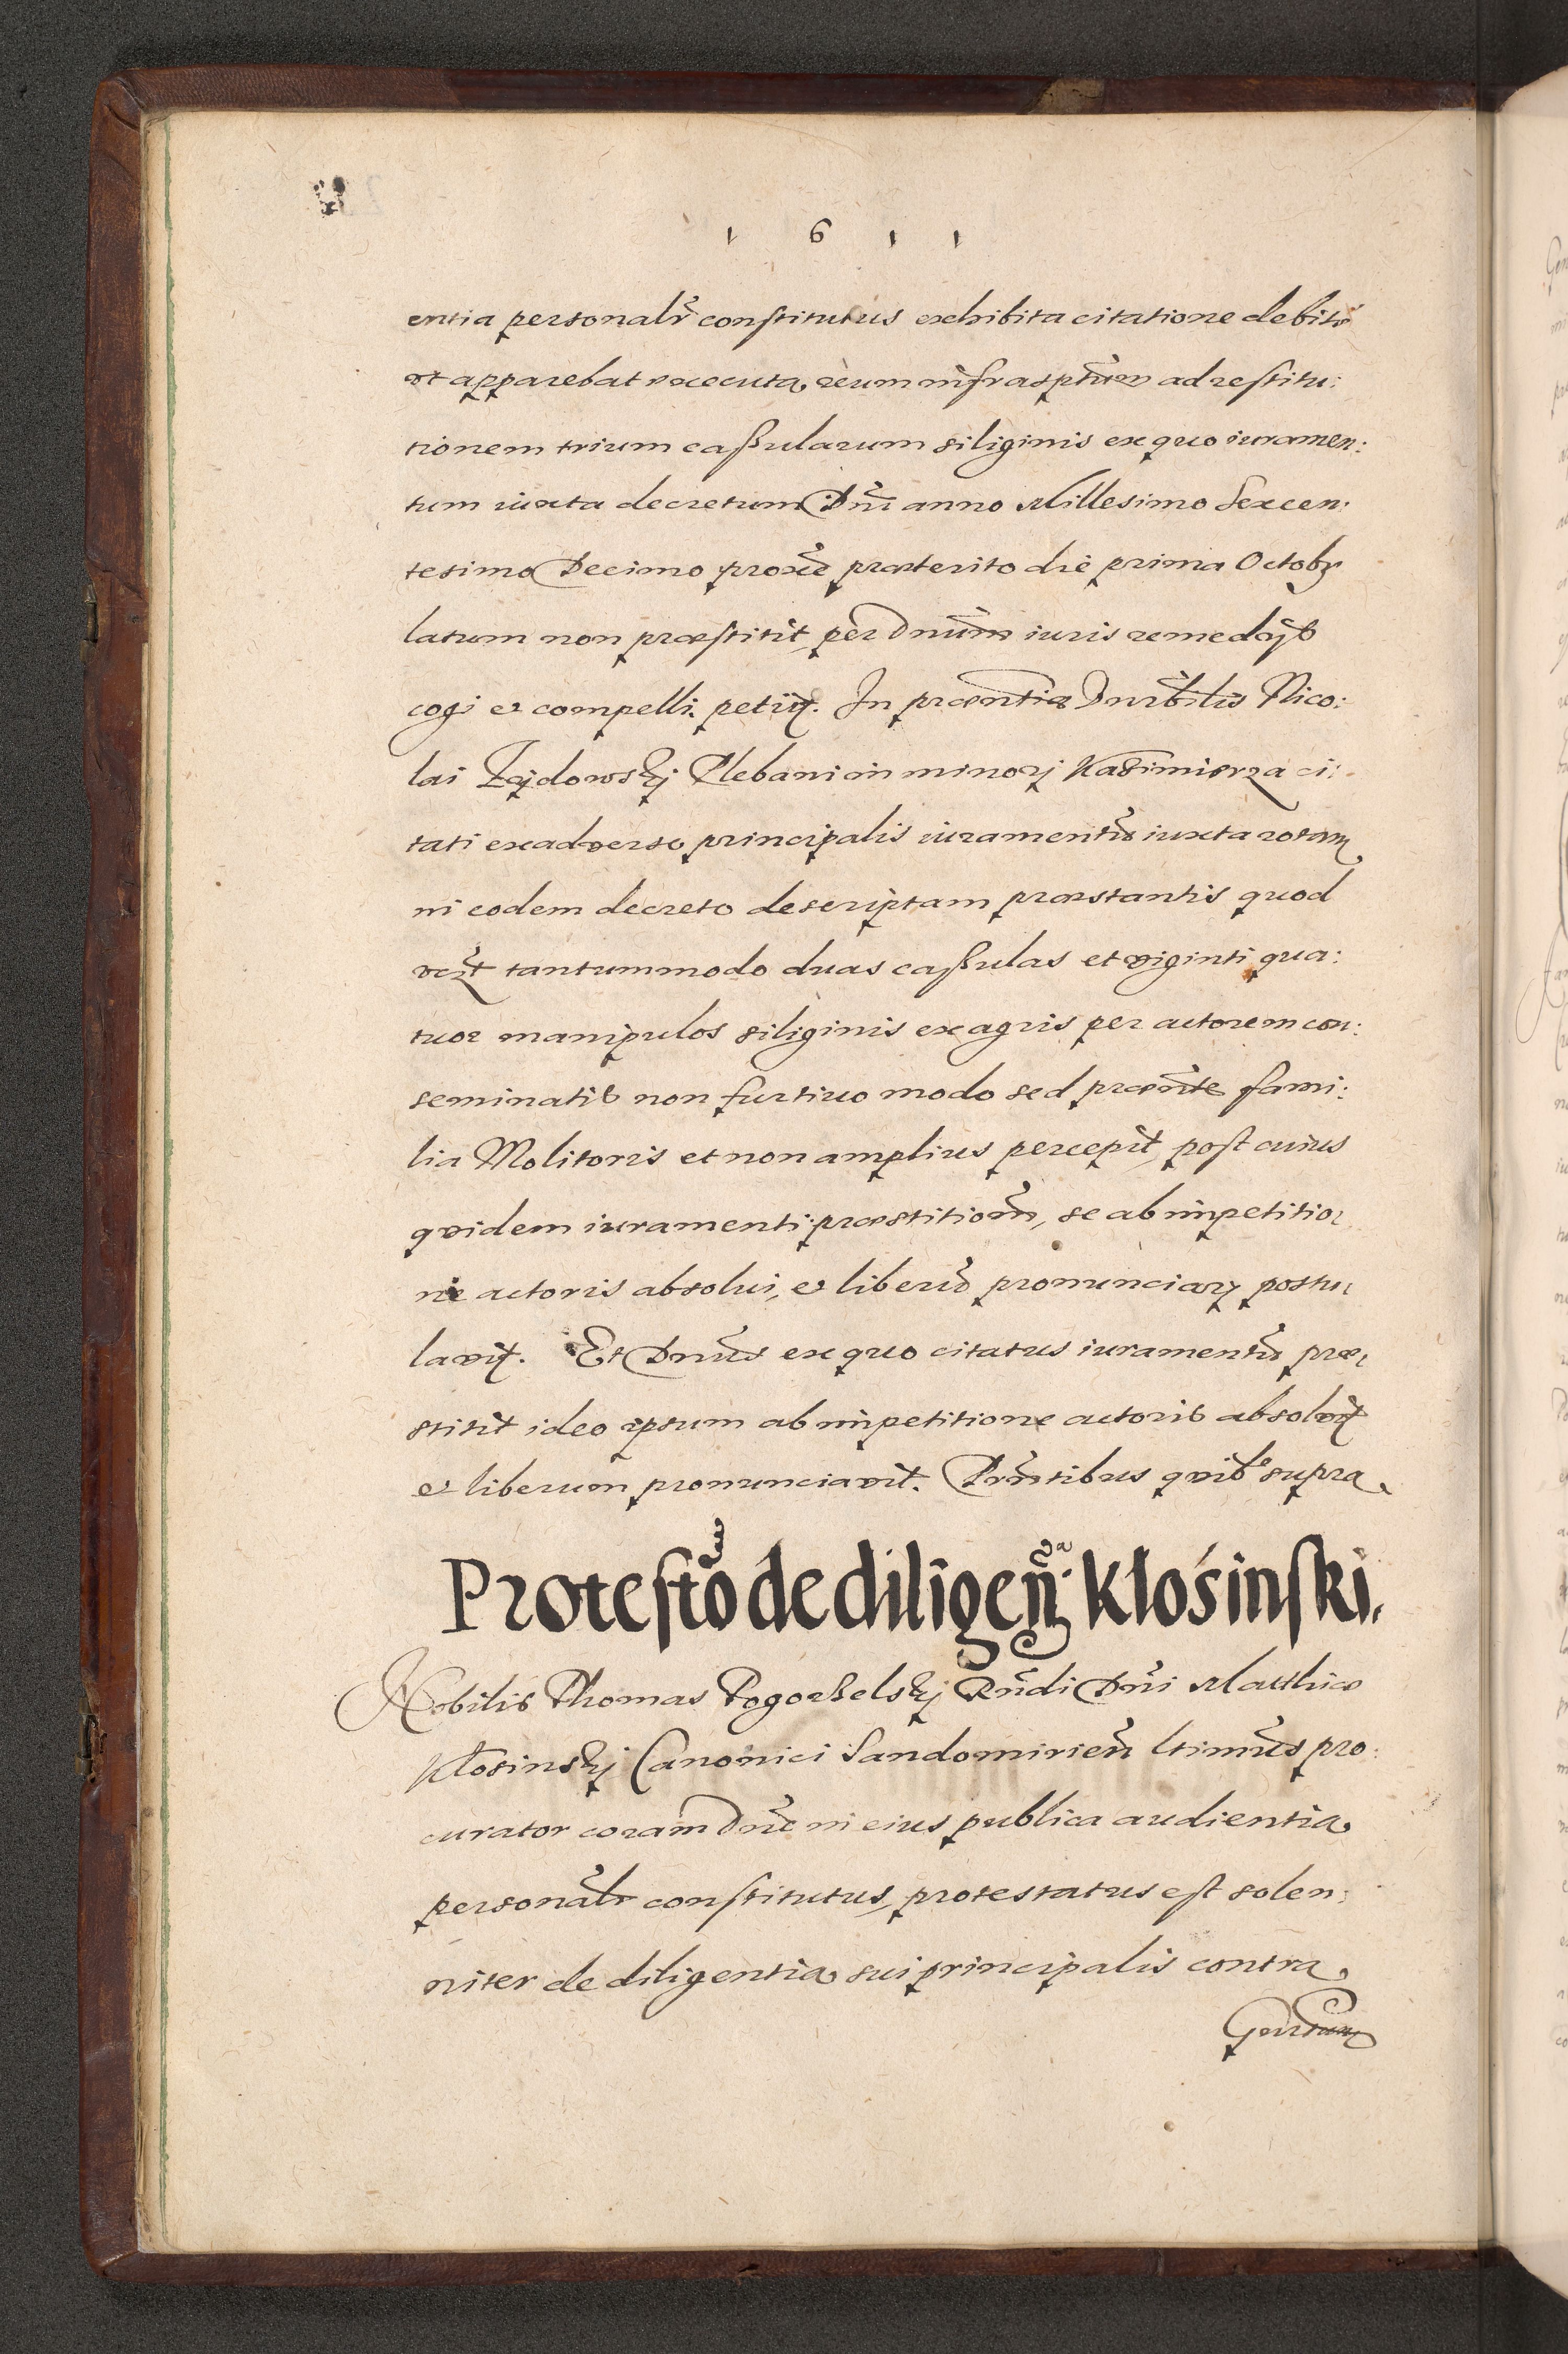 1 6 1 1
entia personalr constitutus exhibita citatione debite
ut apparebat executa, reum infrascptum ad restitu:
tionem trium caßularum siliginis ex quo iuramen:
tum iuxta decretum Dni anno Millesimo Sexcen:
tesimo Decimo proxe præterito die prima Octobr
latum non præstitit, per Dnum iuris remedijs
cogi et compelli petijt. In præntia Dni Nico:
lai Plebani in minori Kazimierza ci:
tati ex adverso principalis iuramentu iuxta rotam
in eodem decreto descriptam præstantis quod
vczt tantummodo duas caßulas et viginti qua:
tuor manipulos siliginis ex agris per actorem con:
seminatis non furtivo modo sed præsnte fami:
lia Molitoris et non amplius percepit, post cuius
quidem iuramenti præstitionem, se ab impetitio:
ne actoris absolvi, et liberu pronunciary postu:
lavit. Et Dnus ex quo citatus iuramentu præ:
stitit ideo ipsum ab impetitione actoris absolvit
et liberum pronunciavit. Prntibus quib supra
Protesto de diligen. Kłośinski.
Nobilis Thomas Pogorzelskj Rndi Dni Matthiæ
Kłosinskj Canonici Sandomirien ltimus pro:
curator coram Dno in eius publica audientia
personalr constitutus, protestatus est solen:
niter de diligentia sui principalis contra